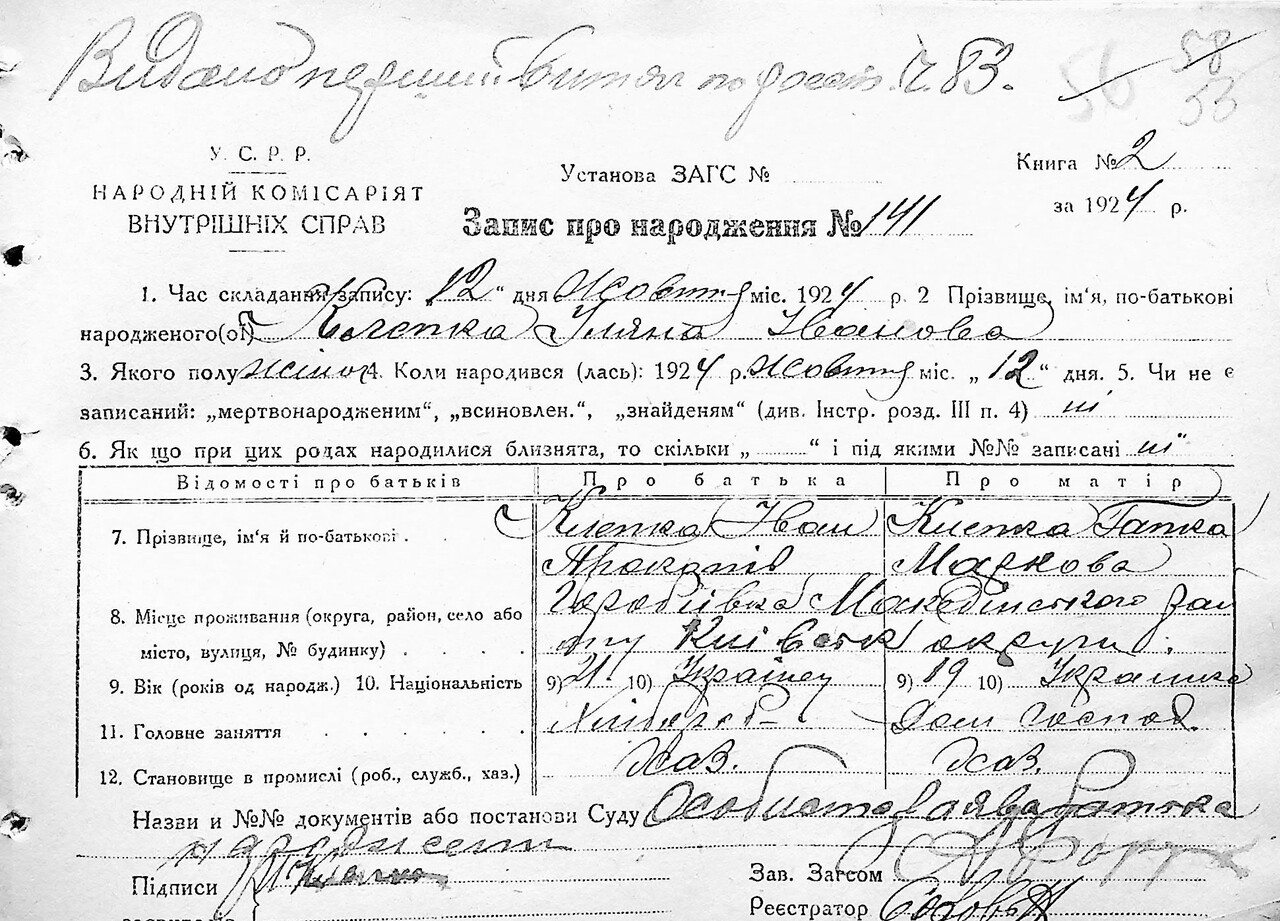 Видано перший витяг по реєстр. Ч. 83.
58
53
56
У. С. Р. Р.
НАРОДНІЙ КОМІСАРІЯТ
ВНУТРІШНІХ СПРАВ
Установа ЗАГС №
Книга № 2
за 1924 р.
Запис про народження № 141
1. Час складання запису: „12“ дня Жовтня міс. 1924 р. 2 Прізвище, ім‘я, по-батькові
народженого(ої) Клепка Уляна Іванова
3. Якого полу жіноч 4. Коли народився (лась): 1924 р. Жовтня міс. „12“ дня. 5. Чи не є
записаний: „мертвонародженим“, „всиновлен.“, „знайденям“ (див. Інстр. розд. III п. 4) ні
6. Як що при цих родах народилися близнята, то скільки „ “ і під якими №№ записані ні
Відомості про батьків Про батька Про матір
7. Прізвище, ім‘я й по-батькові Клепка Іван Клепка Гапка
Прокопів Маркова
8. Місце проживання (округа, район, село або Горобіївка Македонського рай
місто, вулиця, № будинку) ону Київськ округи.
9. Вік (років од народж.) 10. Національність 9) 21 10) Українец 9) 19 10) Українка
11. Головне заняття Хлібороб Дом господ.
12. Становище в промислі (роб., служб., хаз.) Хаз. Хаз.
Назви и №№ документів або постанови Суду Особиста заява батька
Підписи
Зав. Загсом
Реєстратор